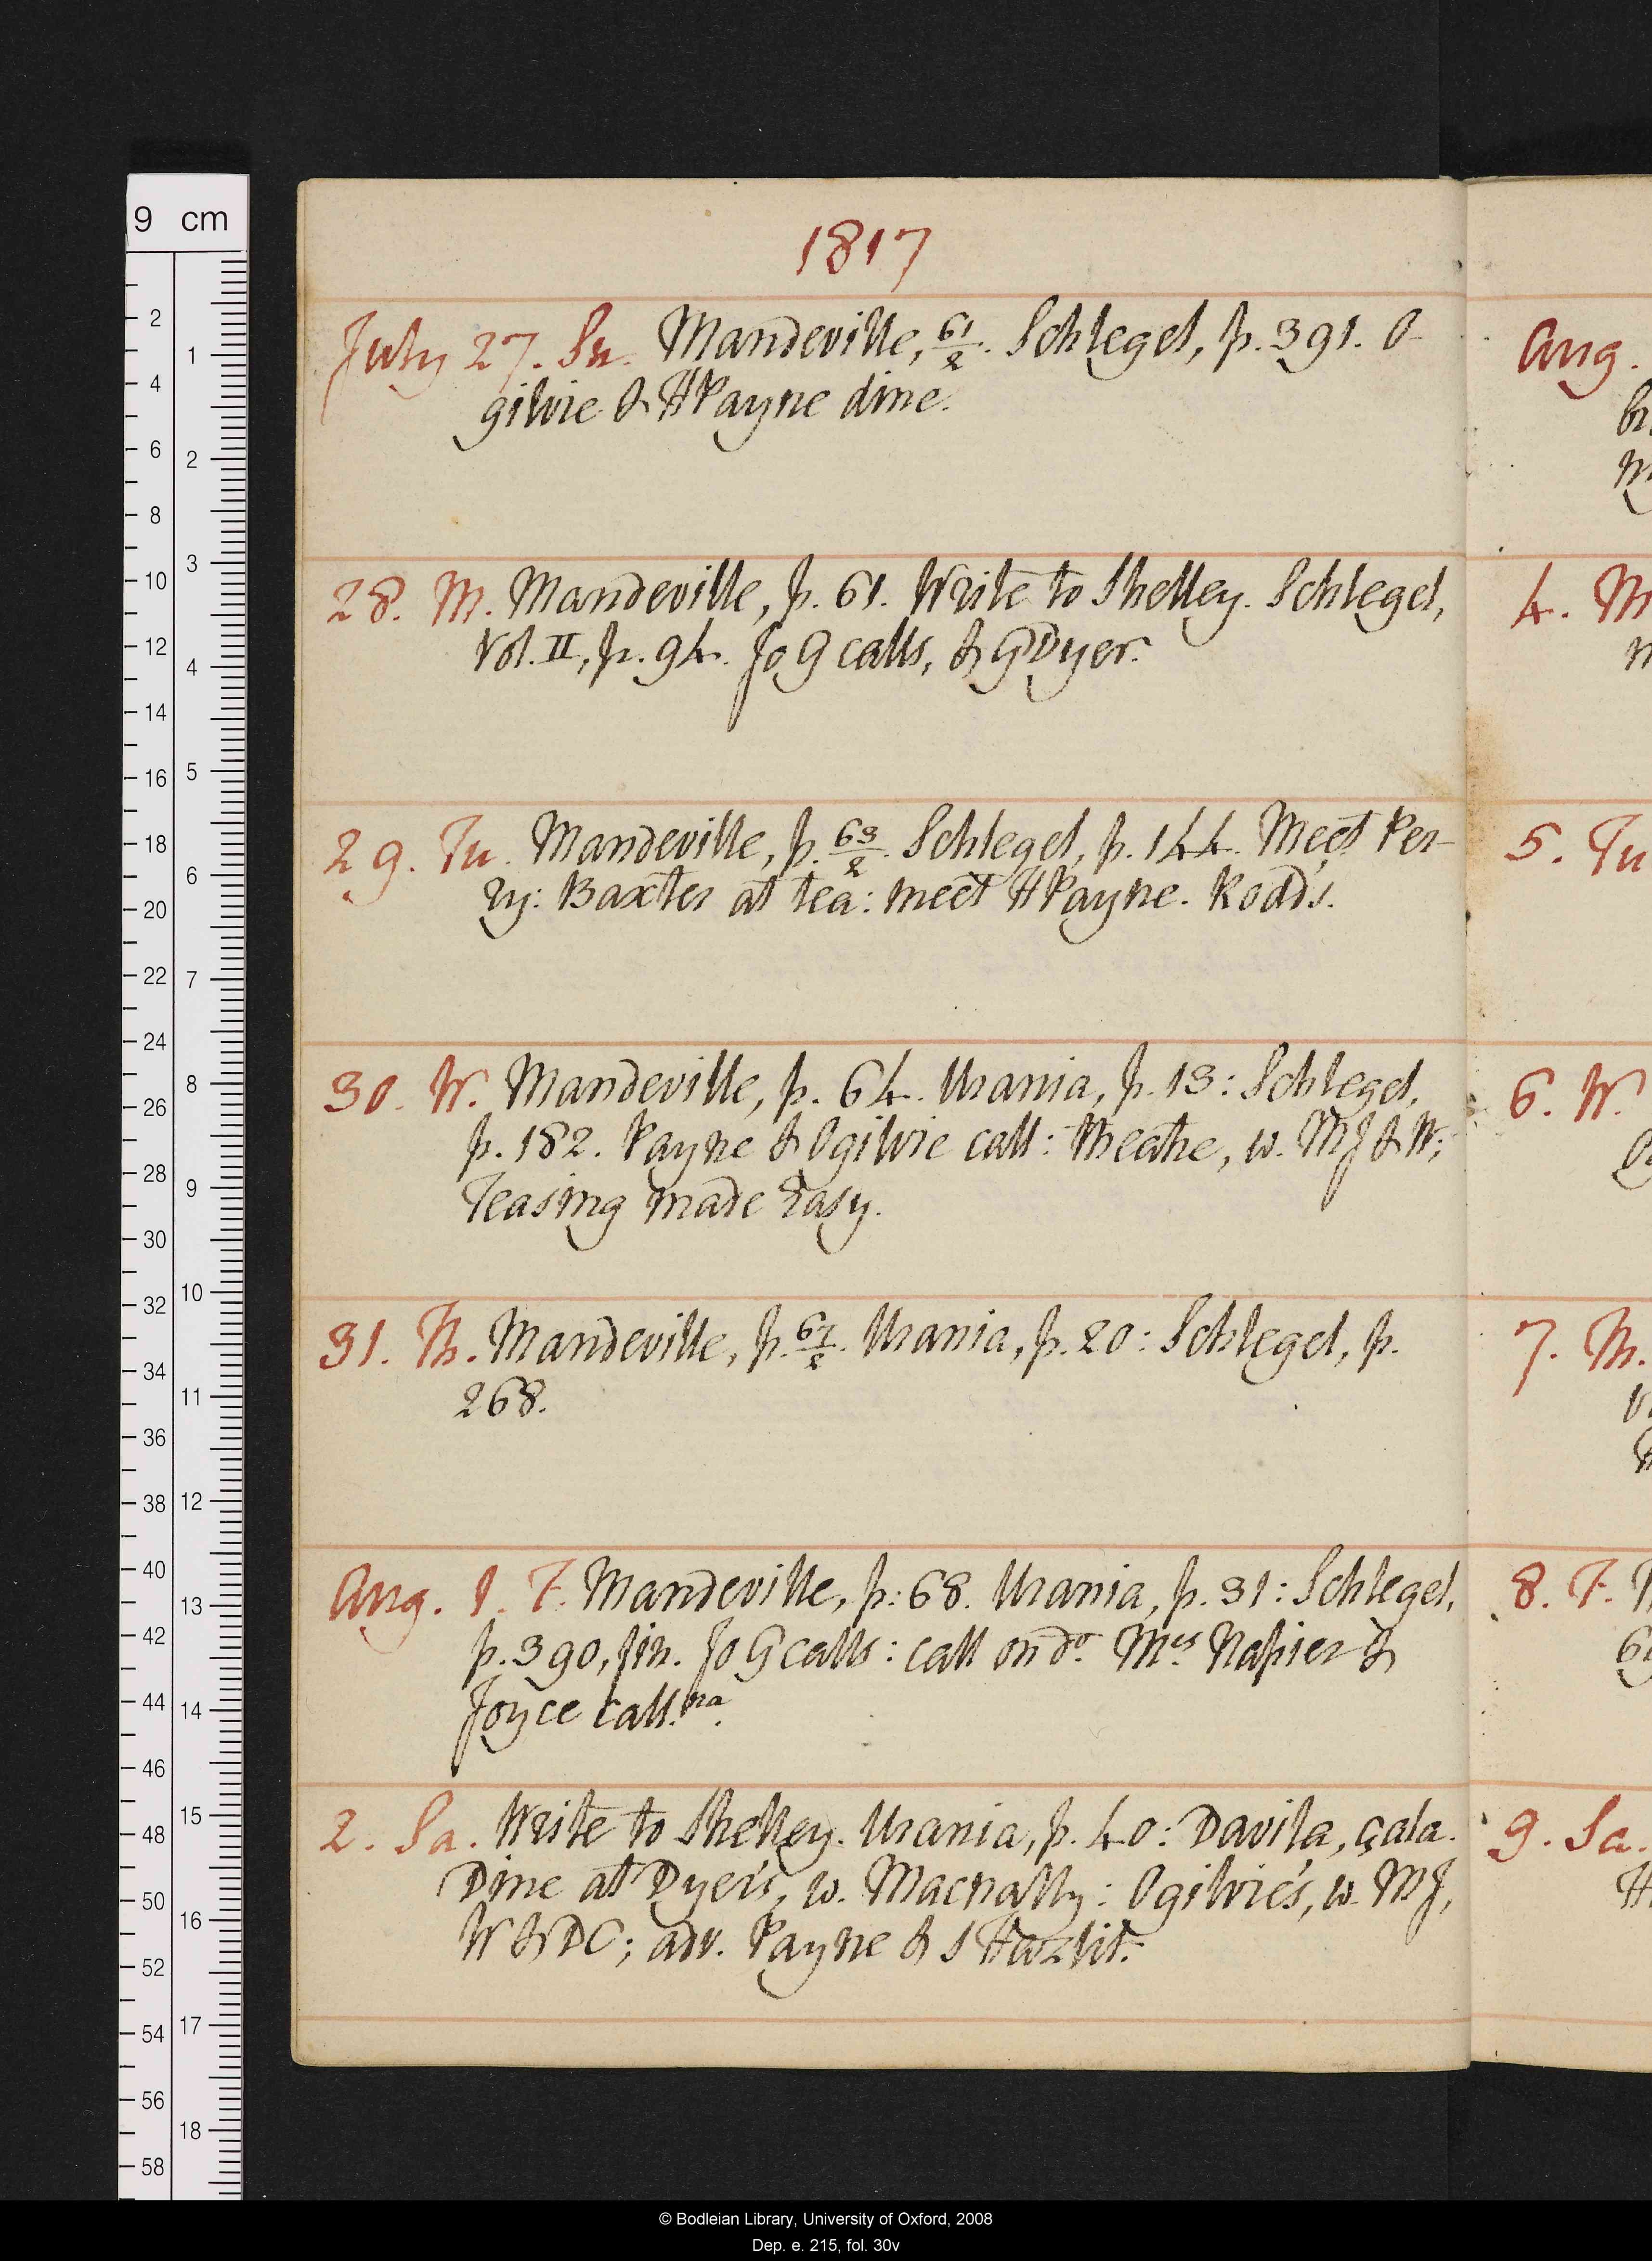 1817
July 27. Su. Mandeville, 61/2. Schlegel, p. 391. O-
gilvie & HPayne dine.
28. M. Mandeville, p. 61. Write to Shelley. Schlegel,
Vol. II, p. 94. Jo G calls, & GDyer.
29. Tu. Mandeville, p. 63/2. Schlegel, p. 144. Meet Per-
ry: Baxter at tea: meet HPayne. Rodd's.
30. W. Mandeville, p. 64. Urania, p. 13: Schlegel,
p. 182. Payne & Ogilvie call: theatre, w. MJ & W;
Teasing made Easy.
31. Th. Mandeville, p. 67/2. Urania, p. 20: Schlegel, p.
268.
Aug. 1. F. Mandeville, p. 68. Urania, p. 31: Schlegel,
p. 390, fin. Jo G calls: call on do. Mrs Napier &
Joyce call. na.
2. Sa. Write to Shelley. Urania, p. 40: Davila, çala.
Dine at Dyer's, w. Macnally: Ogilvie's, w. MJ,
W & DC; adv. Payne & S Hazlit.
Aug.
4. M
5. Tu
6. W.
7. Th.
8. F.
9. Sa.
9 cm
2
4
6
8
10
12
14
16
18
20
22
24
26
28
30
32
34
36
38
40
42
44
46
48
50
52
54
56
58
1
2
3
4
5
6
7
8
9
10
11
12
13
14
15
16
17
18
© Bodleian Library, University of Oxford, 2008
Dep. e. 215, fol. 30v